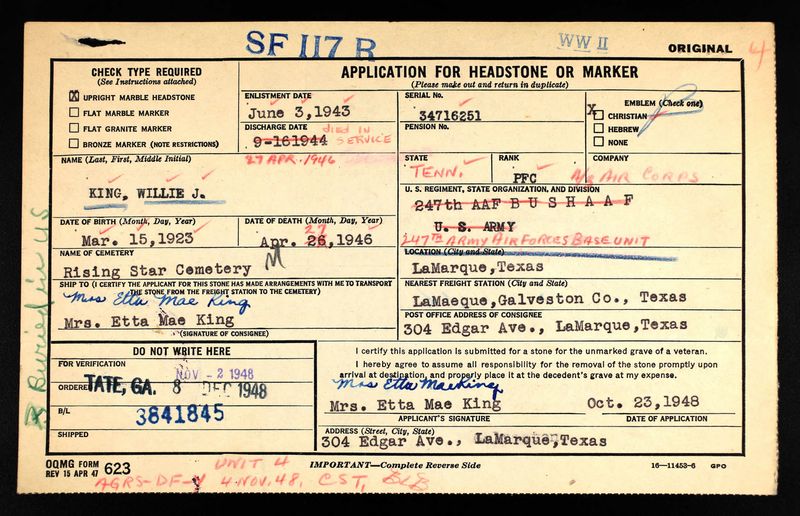 SF 117 R
WW II
ORIGINAL
4
CHECK TYPE REQUIRED
(See Instructions attached)
X UPRIGHT MARBLE HEADSTONE
FLAT MARBLE MARKER
FLAT GRANITE MARKER
BRONZE MARKER (NOTE RESTRICTIONS)
APPLICATION FOR HEADSTONE OR MARKER
(Please make out and return in duplicate)
ENLISTMENT DATE
June 3, 1943
DISCHARGE DATE
9-161944
DIED IN SERVICE
27 APR. 1946
SERIAL No.
34716251
PENSION No.
EMBLEM (Check one)
X CHRISTIAN
HEBREW
NONE
NAME (Last, First, Middle Initial)
KING, WILLIE J.
STATE
TENN.
RANK
PFC
COMPANY
AIR CORPS
U. S. REGIMENT, STATE ORGANIZATION, AND DIVISION
247th AAF B U S H A A F
U. S. ARMY
247TH ARMY AIR FORCES BASE UNIT
DATE OF BIRTH (Month, Day, Year)
Mar. 15,1923
DATE OF DEATH (Month, Day, Year)
27
Apr. 26,1946
NAME OF CEMETERY
Rising Star Cemetery
LOCATION (City and State)
LaMarque,Texas
SHIP TO (I CERTIFY THE APPLICANT FOR THIS STONE HAS MADE ARRANGEMENTS WITH ME TO TRANSPORT
THE STONE FROM THE FREIGHT STATION TO THE CEMETERY)
Mrs Etta Mae King
Mrs. Etta Mae King
(SIGNATURE OF CONSIGNEE)
NEAREST FREIGHT STATION (City and State)
LaMaeque,Galveston Co., Texas
POST OFFICE ADDRESS OF CONSIGNEE
304 Edgar Ave., LaMarque,Texas
DO NOT WRITE HERE
FOR VERIFICATION
NOV - 2 1948
ORDERED
TATE, GA. 8 DEC 1948
B/L
3841845
SHIPPED
I certify this application is submitted for a stone for the unmarked grave of a veteran.
I hereby agree to assume all responsibility for the removal of the stone promptly upon
arrival at destination, and properly place it at the decedent's grave at my expense.
Mrs Etta Mae King
Mrs. Etta Mae King
Oct. 23,1948
APPLICANT'S SIGNATURE
DATE OF APPLICATION
ADDRESS (Street, City, State)
304 Edgar Ave., LaMarque,Texas
OQMG FORM 623
REV 15 APR 47
IMPORTANT—Complete Reverse Side
16—11453-6 GPO
UNIT 4
AGRS-DF-Y 4 NOV. 48, CST,
Buried in US